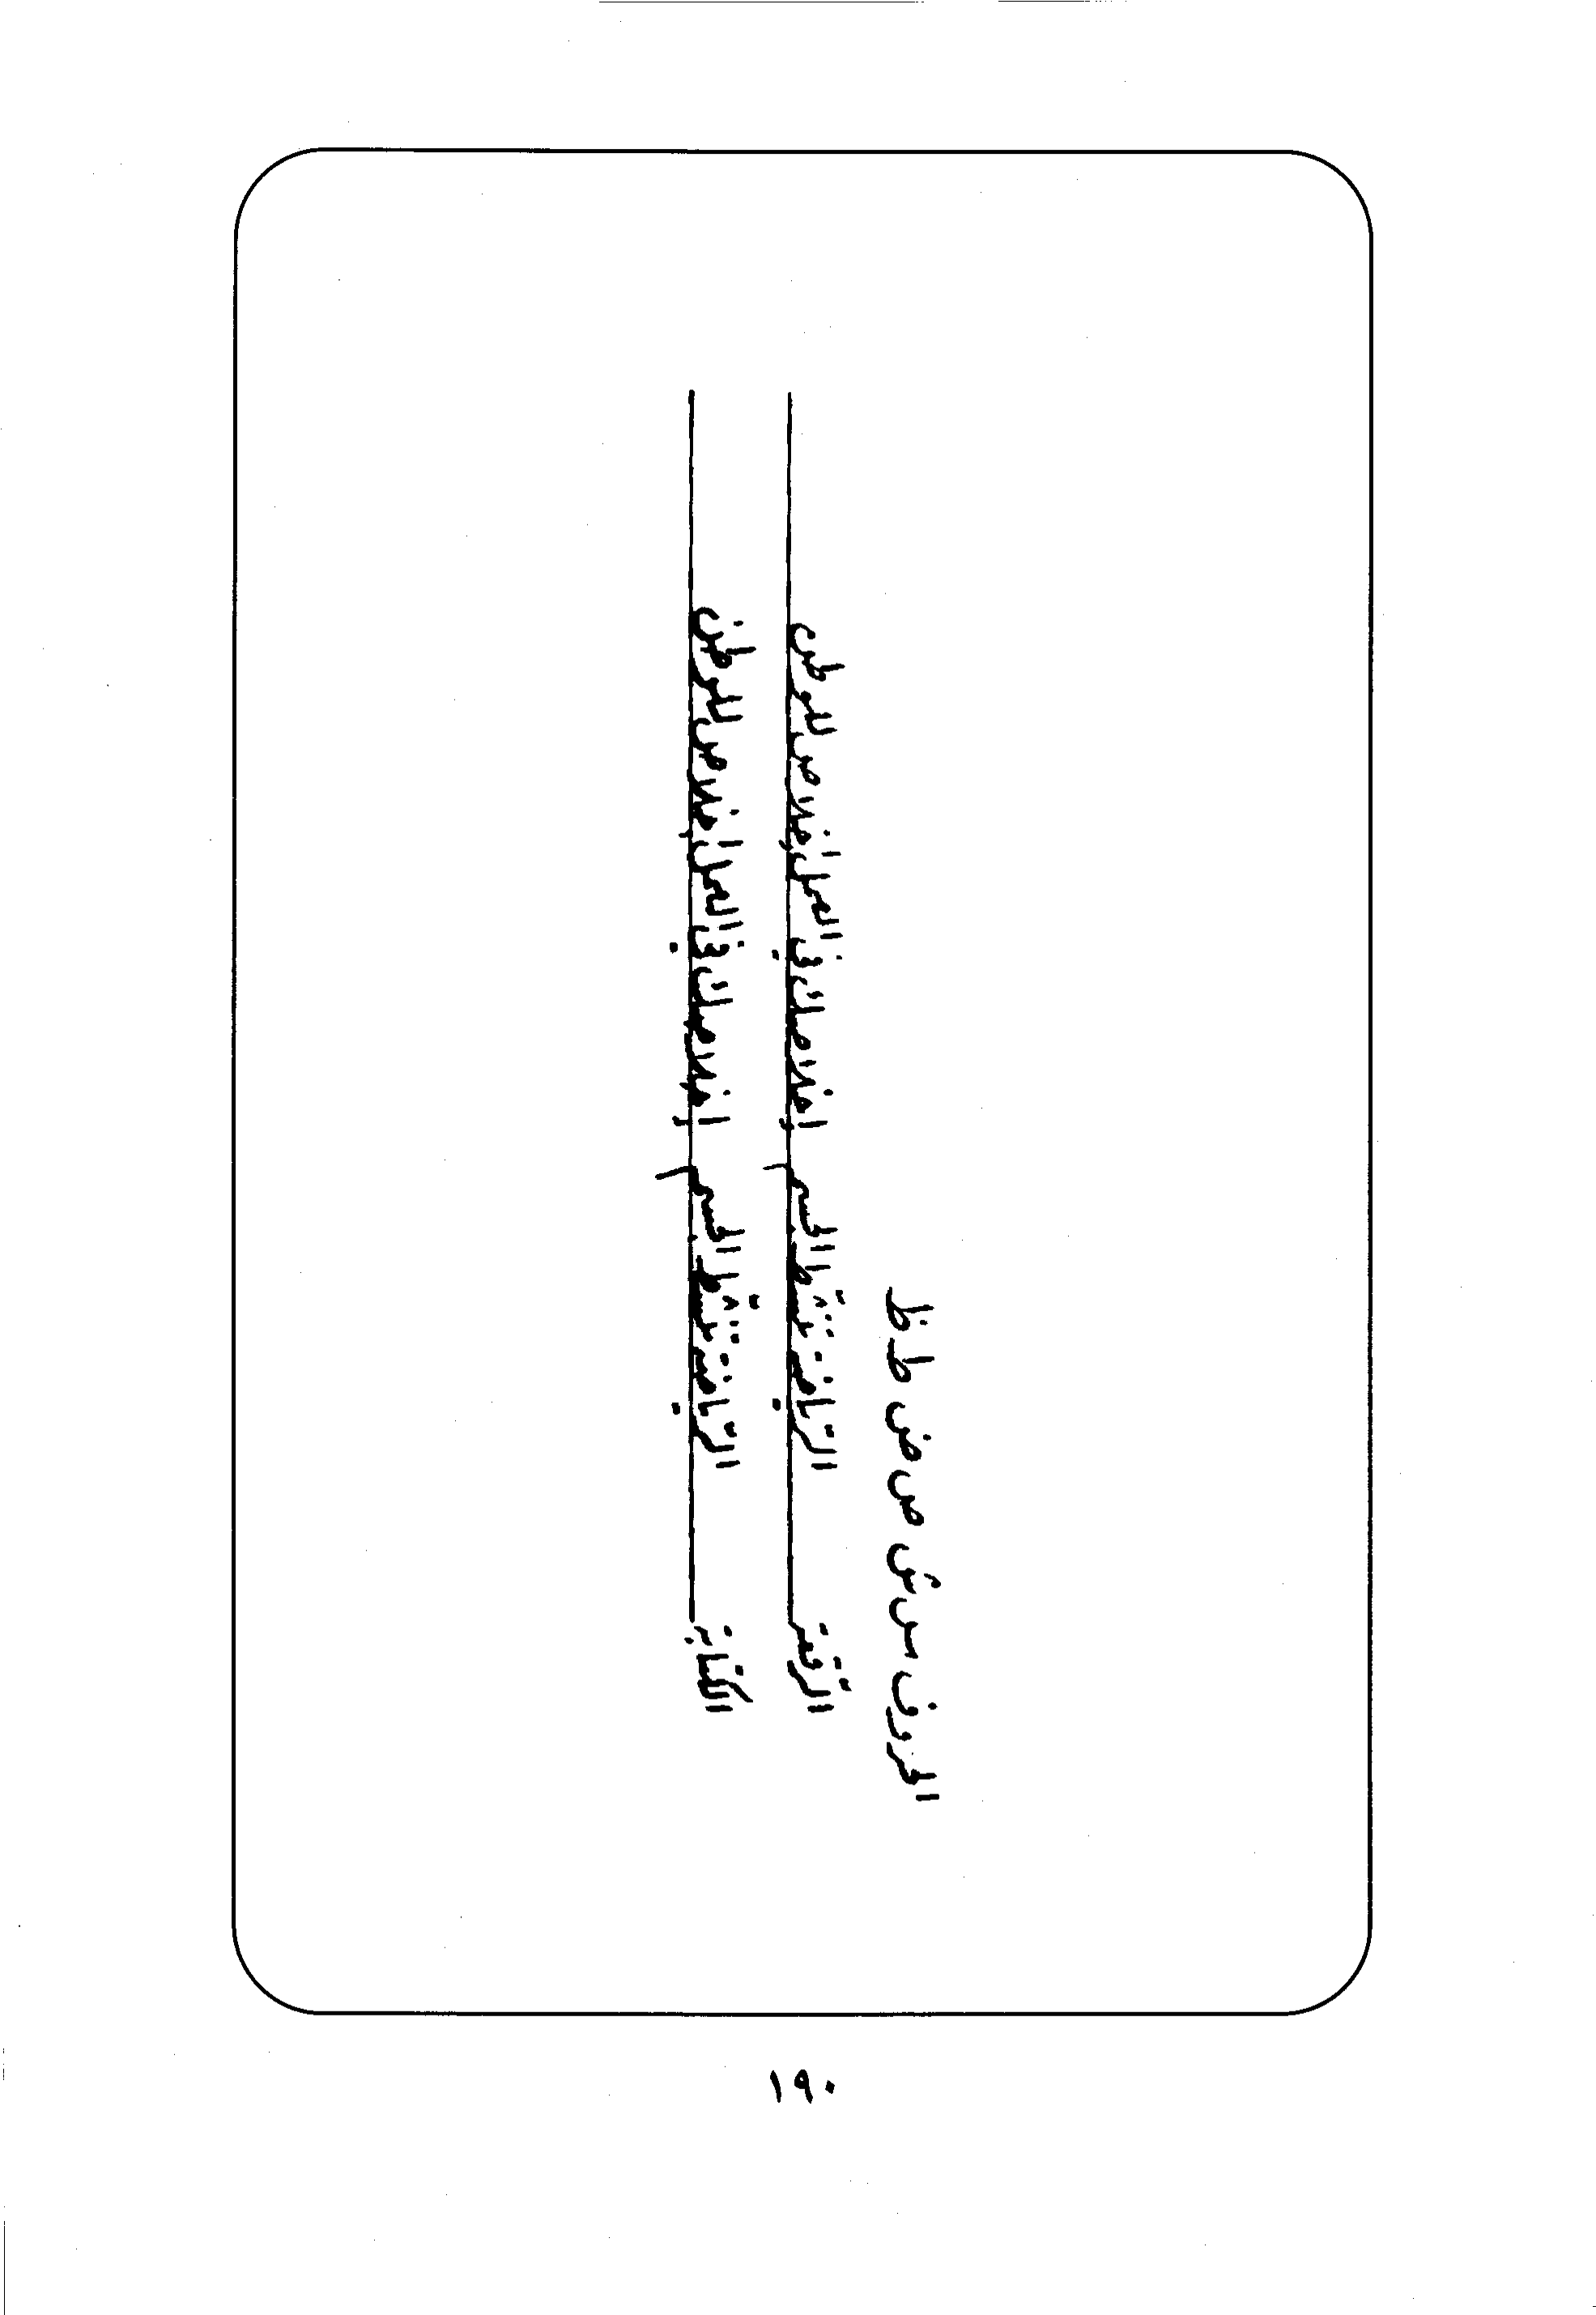 الحروف س ش ص ض ط ظ
الرّقعة الرّياضة تنشّط الجسم إخلاصك في العمل إخلاص للوطن
الكتابة الرّياضة تنشّط الجسم إخلاصك في العمل إخلاص للوطن
١٩٠